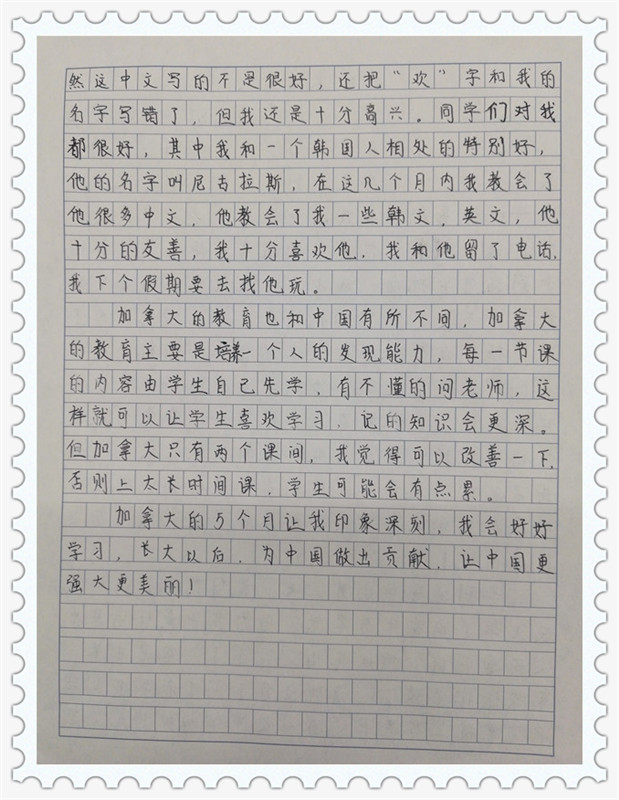 然这中文写的不是很好，还把“欢”字和我的
名字写错了，但我还是十分高兴。同学们对我
都很好，其中我和一个韩国人相处的特别好，
他的名字叫尼古拉斯，在这几个月内我教会了
他很多中文，他教会了我一些韩文，英文，他
十分的友善，我十分喜欢他，我和他留了电话，
我下个假期要去找他玩。
加拿大的教育也和中国有所不同，加拿大
的教育主要是培养一个人的发现能力，每一节课
的内容由学生自己先学，有不懂的问老师，这
样就可以让学生喜欢学习，记的知识会更深。
但加拿大只有两个课间，我觉得可以改善一下，
否则上太长时间课，学生可能会有点累。
加拿大的5个月让我印象深刻，我会好好
学习，长大以后，为中国做出贡献，让中国更
强大更美丽！